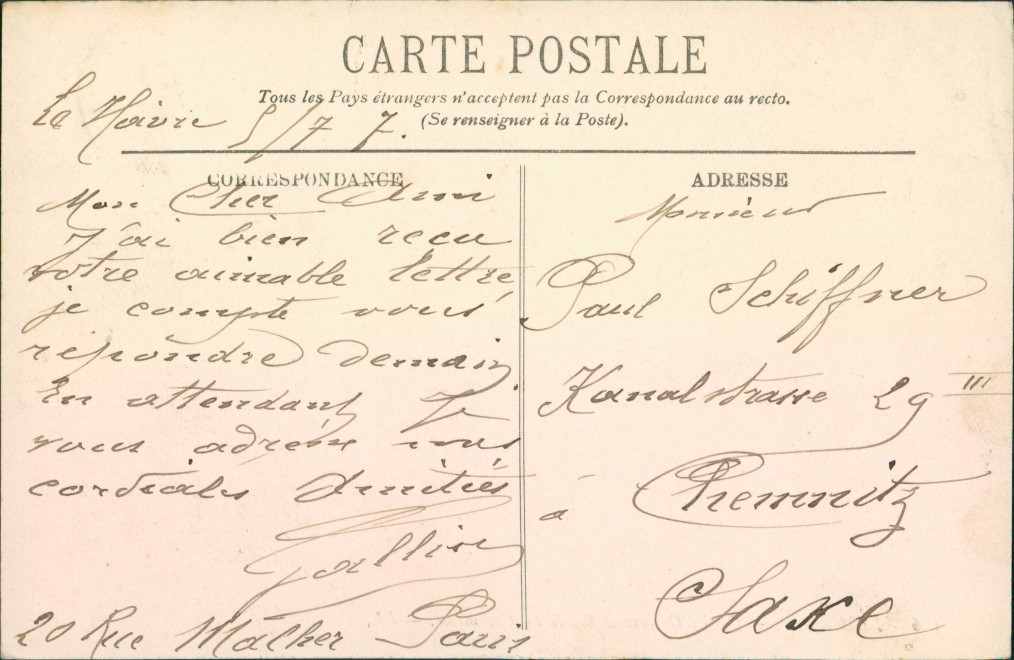 CARTE POSTALE
Tous les Pays étrangers n'acceptent pas la Correspondance au recto.
(Se renseigner à la Poste).
Le Havre 5/7 7.
CORRESPONDANCE
Mon Cher Ami
J'ai bien recu
votre aimable lettre,
je compte vous
répondre demain
En attendant Je
vous adresse mes
cordiales Amitiés
20 Rue Paris
ADRESSE
Monsieur
Paul Schiffner
Kanalstrasse 29 III
a Chemnitz
Saxe